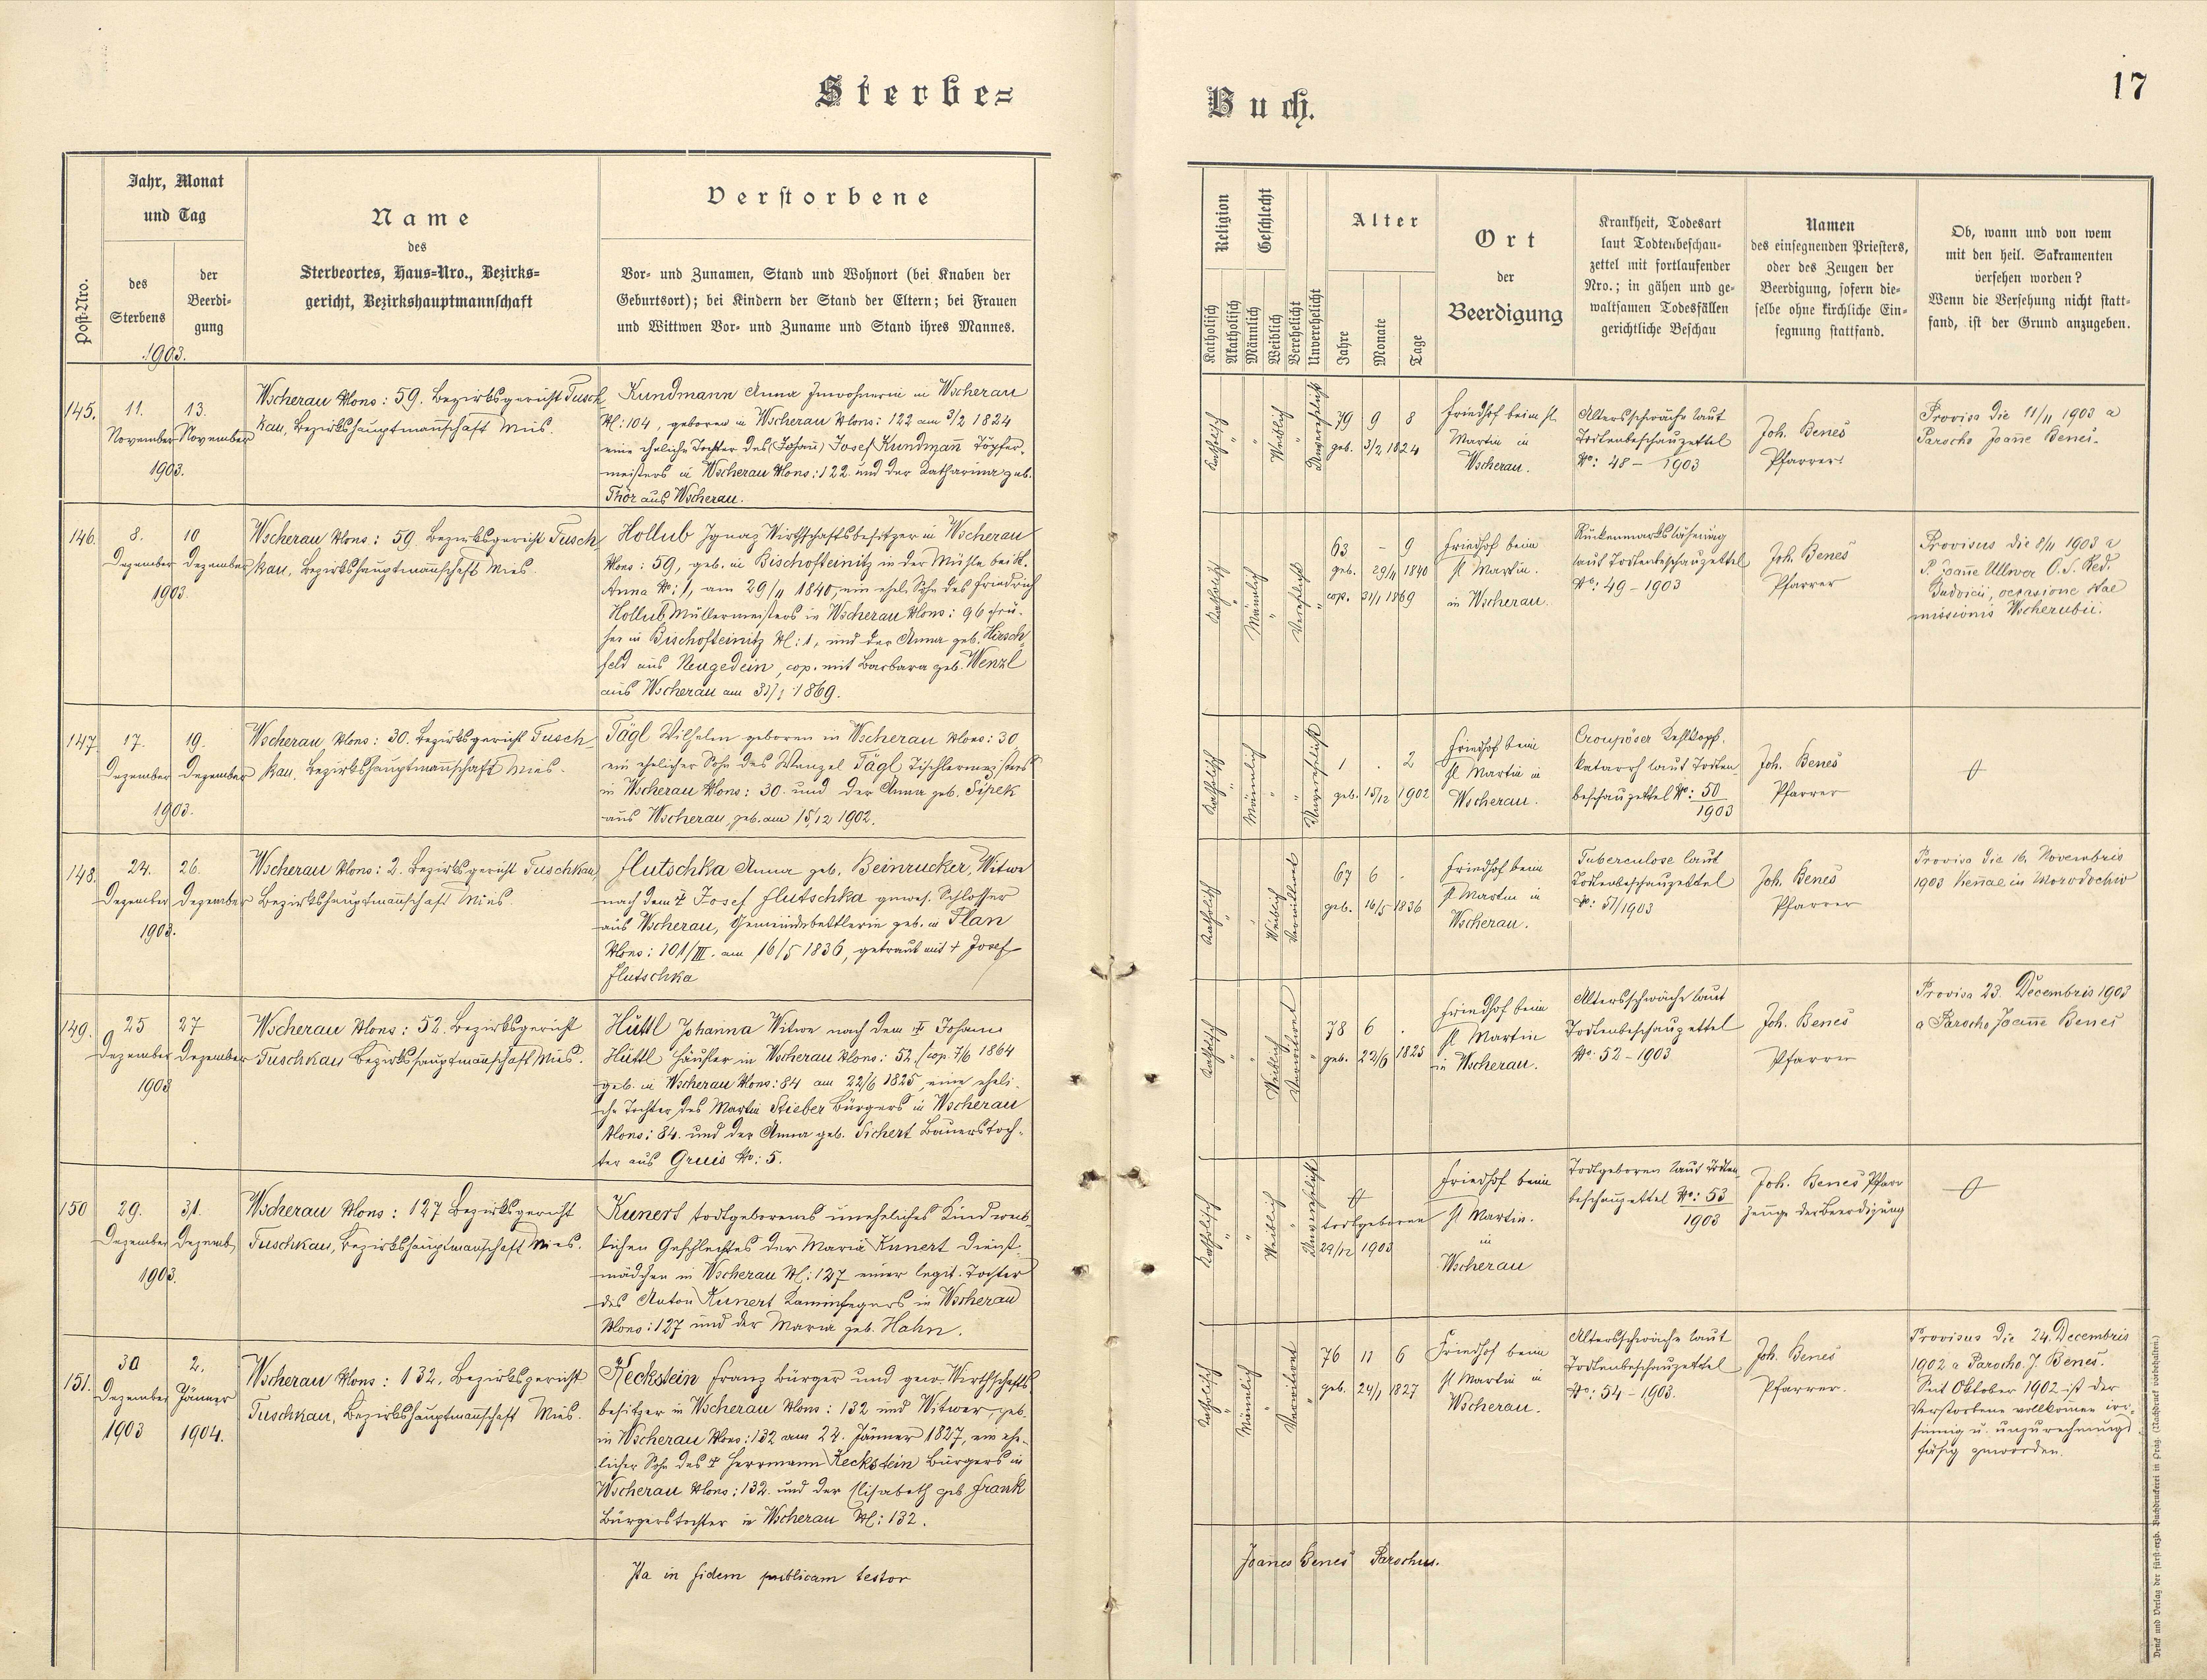 Sterbe=
Buch.
17
Post-Nro.
Jahr, Monat
und Tag
des
Sterbens
der
Beerdi-
gung
1903.
Name
des
Sterbeortes, Haus=Nro., Bezirks=
gericht, Bezirkshauptmannschaft
Verstorbene
Vor- und Zunamen, Stand und Wohnort (bei Knaben der
Geburtsort); bei Kindern der Stand der Eltern; bei Frauen
und Wittwen Vor- und Zuname und Stand ihres Mannes.
Religion
Katholisch
Akatholisch
Geschlecht
Männlich
Weiblich
Verehelicht
Unverehelicht
Alter
Jahre
Monate
Tage
Ort
der
Beerdigung
Krankheit, Todesart
laut Todtenbeschau-
zettel mit fortlaufender
Nro.; in gähen und ge-
waltsamen Todesfällen
gerichtliche Beschau
Namen
des einsegnenden Priesters,
oder des Zeugen der
Beerdigung, sofern die-
selbe ohne kirchliche Ein-
segnung stattfand.
Ob, wann und von wem
mit den heil. Sakramenten
versehen worden?
Wenn die Versehung nicht statt-
fand, ist der Grund anzugeben.
145.
11.
November
13.
November
1903.
Wscherau NCons: 59. Bezirksgericht Tusch
kau, Bezirkshauptmanschaft Mies.
Kundmann Anna Inwohnerin in Wscherau
NC: 104, geboren in Wscherau NCons: 122 am 3/2 1824
eine eheliche Tochter des (Johann) Josef Kundmann Töpfer-
meisters in Wscherau NCons: 122 und der Katharina geb.
Thör aus Wscherau.
Katholisch
Weiblich
Unverehelicht
79 9 8
geb. 3/2 1824
Friedhof beim st.
Martin in
Wscherau.
Altersschwäche laut
Todtenbeschauzettel
No: 48 – 1903
Joh. Beneš
Pfarrer
Provisa die 11/11 1903 a
Parocho Joanne Beneš.
146.
8.
Dezember
10
Dezember
1903.
Wscherau NCons: 59. Bezirksgericht Tusch
kau, Bezirkshauptmanschaft Mies.
Hollub Ignaz Wirthschaftsbesitzer in Wscherau
NCons: 59, geb. in Bischofteinitz in der Mühle bei St.
Anna No: 1, am 29/11 1840, ein ehel. Sohn des Friedrich
Hollub Müllermeisters in Wscherau NCons: 96 frü-
her in Bischofteinitz NC: 1, und der Anna geb. Hirsch-
feld aus Neugedein, cop. mit Barbara geb. Wenzl
aus Wscherau am 31/1 1869.
Katholisch
Männlich
Verehelicht
63 – 9
geb. 29/11 1840
cop. 31/1 1869
Friedhof beim
st Martin.
in Wscherau.
Rückenmarkslähmung
laut Todtenbeschauzettel
No: 49 – 1903
Joh. Beneš
Pfarrer
Provisus die 8/11 1903 a
P. Joanne Ullwer O. S. Red.
occasione stae
missionis Wscherubii.
147.
17.
Dezember
19.
Dezember
1903.
Wscherau NCons: 30. Bezirksgericht Tusch
kau, Bezirkshauptmanschaft Mies.
Tägl Wilhelm geboren in Wscherau NCons: 30
ein ehelicher Sohn des Wenzel Tägl Tischlermeisters
in Wscherau NCons: 30. und der Anna geb. Sipek
aus Wscherau, geb. am 15/12 1902.
Katholisch
Männlich
Unverehelicht
1 . 2
geb. 15/12 1902
Friedhof beim
st Martin in
Wscherau.
Croupöser Kehlkopf-
katarrh laut Todten
beschauzettel No: 50
1903
Joh. Beneš
Pfarrer
148.
24.
Dezember
26.
Dezember
1903.
Wscherau NCons: 2. Bezirksgericht Tuschkau,
Bezirkshauptmanschaft Mies.
Flutschka Anna geb. Beinrucker, Witwe
nach dem † Josef Flutschka gewes. Schlosser
aus Wscherau, Gemeindebettlerin geb. in Plan
NCons: 101/III. am 16/5 1836, getraut mit † Josef
Flutschka
Katholisch
Weiblich
Verwitwet
67 6 .
geb. 16/5 1836
Friedhof beim
st Martin in
Wscherau.
Tuberculose laut
Todtenbeschauzettel
No: 51/1903
Joh. Beneš
Pfarrer
Provisa die 16. Novembris
1903
149.
25
Dezember
27
Dezember
1903
Wscherau NCons: 52. Bezirksgericht
Tuschkau Bezirkshauptmanschaft Mies.
Hüttl Johanna Witwe nach dem † Johann
Hüttl Häusler in Wscherau NCons: 52 (cop. 7/6 1864
geb. in Wscherau NCons: 84 am 22/6 1825, eine eheli-
che Tochter des Martin Stieber Bürgers in Wscherau
NCons: 84. und der Anna geb. Sichert Bauerstoch-
ter aus Gruis No: 5.
Katholisch
Weiblich
Verwitwet
78 6 .
geb. 22/6 1825
Friedhof beim
st Martin
in Wscherau.
Altersschwäche laut
Todtenbeschauzettel
No: 52 – 1903
Joh. Beneš
Pfarrer
Provisa 23. Decembris 1903
a Parocho Joanne Beneš
150
29.
Dezember
31.
Dezemb.
1903.
Wscherau NCons: 127 Bezirksgericht
Tuschkau, Bezirkshauptmanschaft Mies.
Kunert todtgeborenes uneheliches Kind weib-
lichen Geschlechtes der Maria Kunert Dienst-
mädchen in Wscherau NC: 127 einer legit. Tochter
des Anton Kunert Kaminfegers in Wscherau
NCons: 127 und der Maria geb. Hahn.
Katholisch
Weiblich
Unverehelicht
todtgeboren
29/12 1903
Friedhof beim
st Martin.
in
Wscherau
Todtgeboren laut Todten
beschauzettel No: 53
1903
Joh. Beneš Pfarr
Zeuge der Beerdigung
151.
30
Dezember
1903
2.
Jänner
1904.
Wscherau NCons: 132. Bezirksgericht
Tuschkau, Bezirkshauptmanschaft Mies.
Keckstein Franz Bürger und gew. Wirthschafts
besitzer in Wscherau NCons: 132 und Witwer, geb.
in Wscherau NCons: 132 am 24. Jänner 1827, ein ehe-
licher Sohn des † Herrmann Keckstein Bürgers in
Wscherau NCons: 132. und der Elisabeth geb. Frank
Bürgerstochter in Wscherau NC: 132.
Katholisch
Männlich
Verwitwet
76 11 6
geb. 24/1 1827
Friedhof beim
st Martin in
Wscherau.
Altersschwäche laut
Todtenbeschauzettel
No: 54 – 1903.
Joh. Beneš
Pfarrer.
Provisus die 24. Decembris
1902 a Parocho J. Beneš.
Seit Oktober 1902 ist der
Verstorbene vollkommen irr-
sinnig u. unzurechnungs
fähig geworden.
Ita in fidem publicam testor
Joannes Beneš Parochus.
Druck und Verlag der fürst-erzb. Buchdruckerei in Prag. (Nachdruck vorbehalten.)